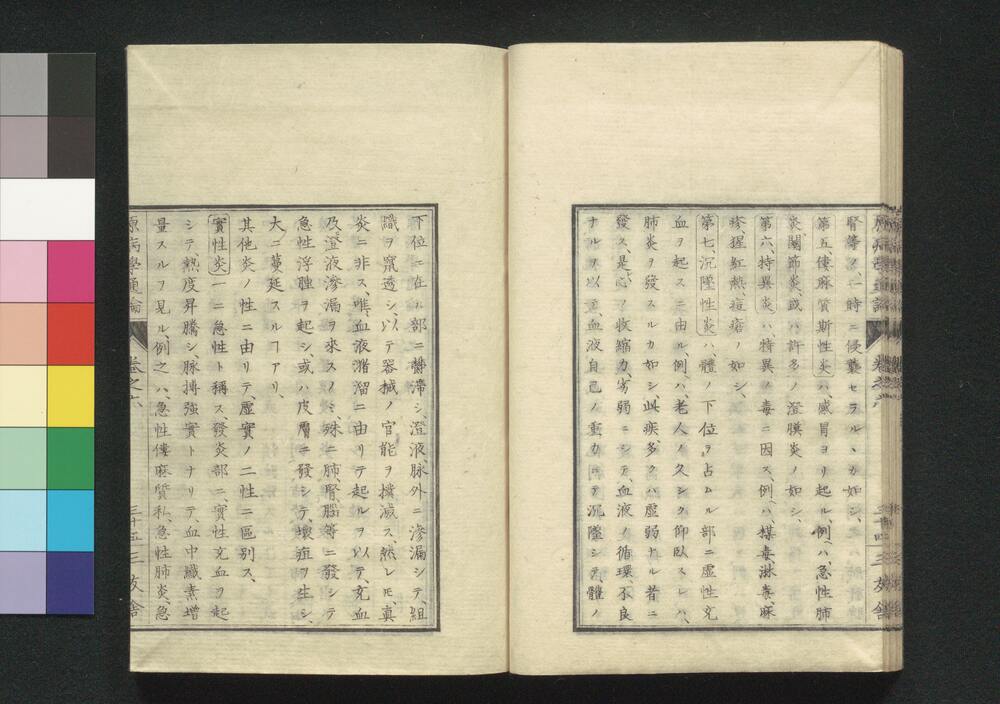 原病學通論
卷之六
三十四
三友舍
腎等ノ、一時ニ侵襲セラルヽカ如シ、
第五、僂麻質斯性炎ハ感冒ヨリ起ル、例ハ、急性肺
炎、關節炎、或ハ許多ノ澄膜炎ノ如シ、
第六、特異炎ハ特異ノ毒ニ因ス、例ハ、楳毒、淋毒、麻
疹、猩紅熱、痘瘡ノ如シ、
第七沉墜性炎ハ、體ノ下位ヲ占ムル部ニ虛性充
血ヲ起スニ由ル、例ハ、老人ノ久シク仰臥スレハ、
肺炎ヲ發スルカ如シ、此疾、多クハ虛弱ナル者ニ
發ス、是心ノ收縮力、劣弱ニシテ、血液ノ循環、不良
ナルヲ以テ、血液自己ノ重力ニテ沉墜シテ、體ノ
下位ニ在ル部ニ欝滯シ、澄液脉外ニ滲漏シテ、組
織ヲ竄透シ、以テ器械ノ官能ヲ擯滅ス、然レ𪜈、眞
炎ニ非ス、唯、血液瀦溜ニ由リテ起ルヲ以テ、充血
及澄液滲漏ヲ來スノミ、殊ニ肺、腎、腦等ニ發シテ
急性浮腫ヲ起シ、或ハ皮膚ニ發シテ、壞疽ヲ生シ、
大ニ蔓延スルヿアリ、
其他炎ノ性ニ由リテ、虛實ノ二性ニ區別ス、
實性炎一ニ急性ト稱ス、發炎部ニ、實性充血ヲ起
シテ、熱度昇騰シ、脉搏強實トナリテ、血中纖素増
量スルヲ見ル、例之ハ、急性僂麻質私、急性肺炎、急
原病學通論
卷之六
三十五
三友舍